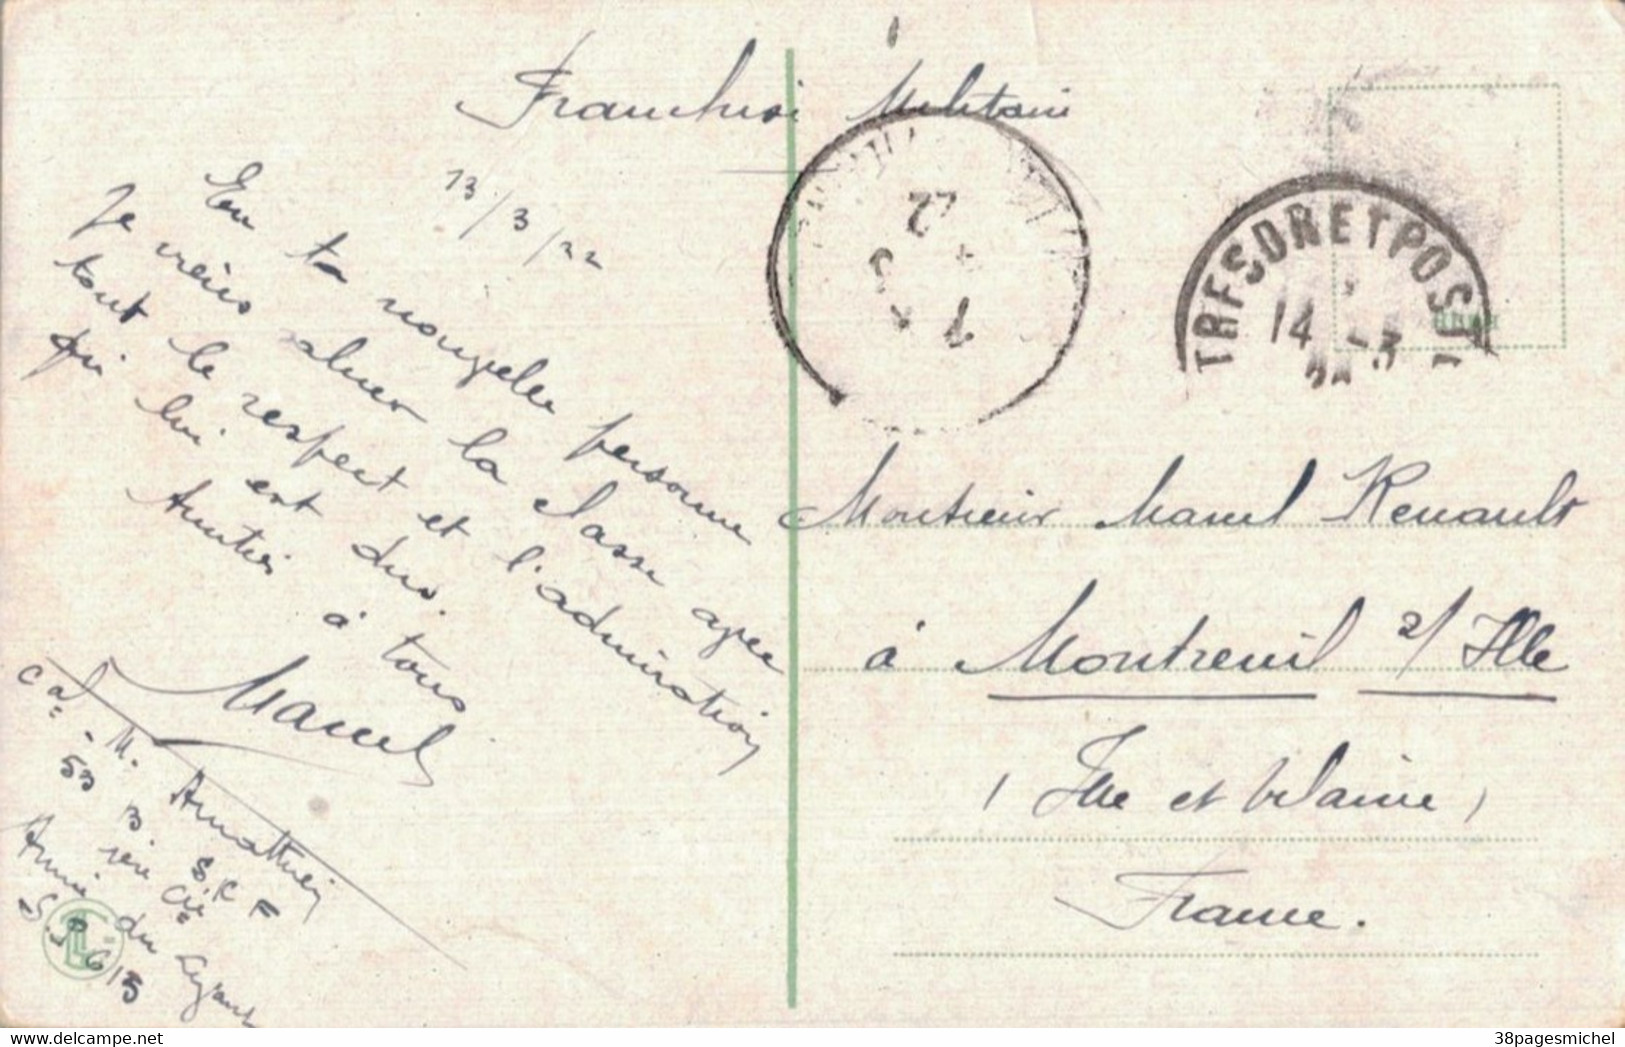 Franchise Militaire
13/3/22
En ta nouvelle personne
Je viens saluer la classe avec
tout le respect et l'admiration
qui lui est due.
Amitiés à tous
Marcel
Cal - M.
53 B S.R F
3 ième Cie
Armée du Levant
S.P 615
22
TRESOR ET POSTE
14 -3
22
Monsieur Marcel Renault
à Montreuil s/ Ille
( Ille et Vilaine )
France.
delcampe.net
38pagesmichel